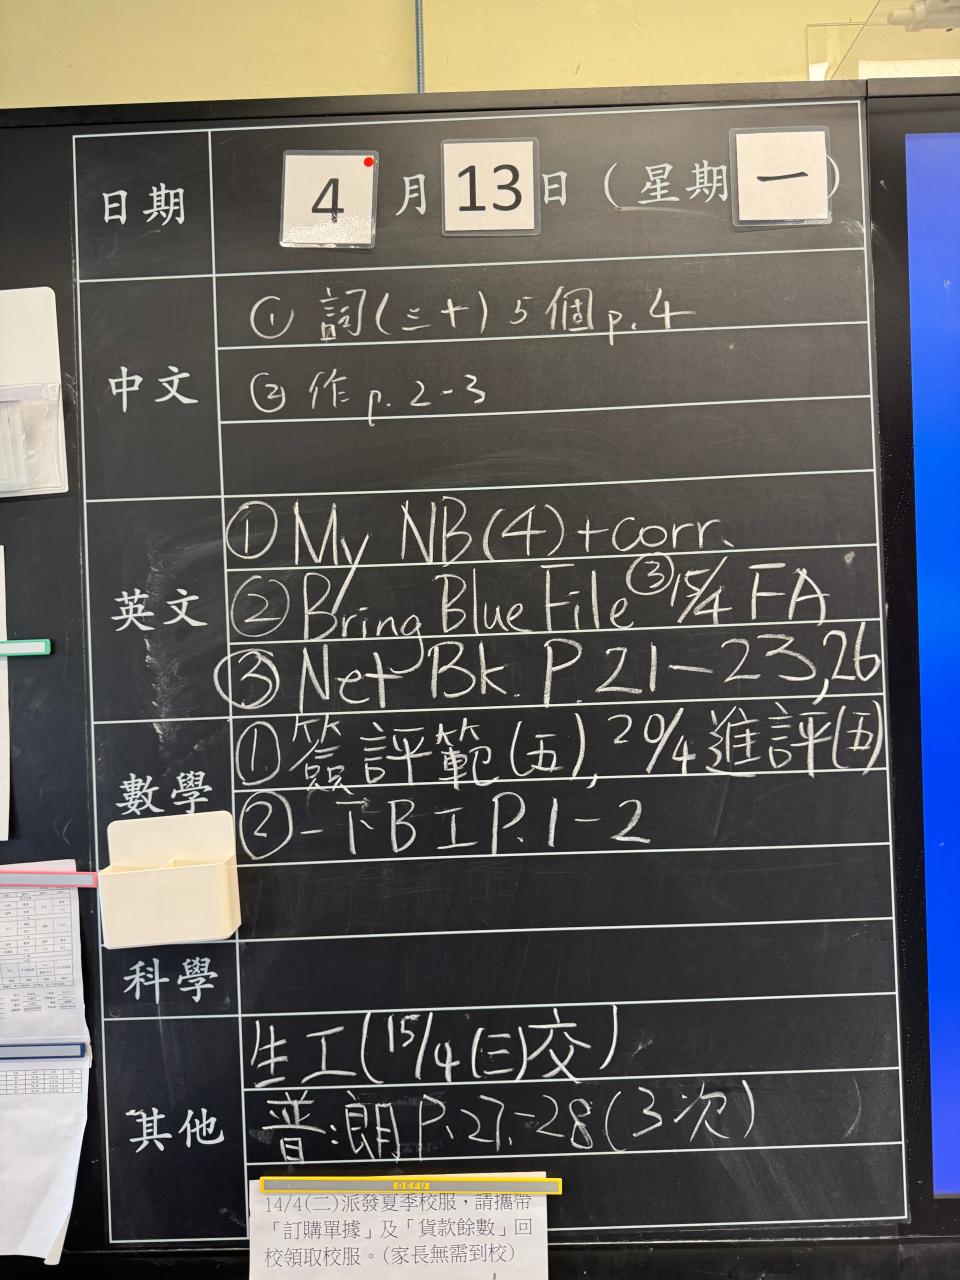 日期 4月13日(星期一)
中文
① 詞(三十)5個 p.4
② 作 p.2-3
英文
① My NB(4)+corr.
② Bring Blue File ③ 15/4 FA
③ Net Bk. P.21-23,26
數學
① 簽評範(五), 20/4進評(五)
② 一下B工P.1-2
科學
其他
生工(15/4(三)交)
普:朗P.27-28(3次)
DEFU
14/4(二)派發夏季校服,請攜帶
「訂購單據」及「貨款餘數」回
校領取校服。(家長無需到校)